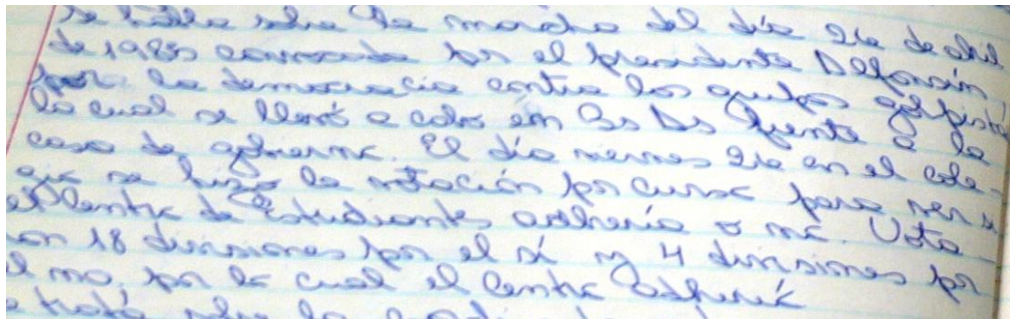 se habla sobre la marcha del día 26 de abril
de 1985 convocada por el presidente Alfonsín,
por la democracia contra los grupos golpista
la cual se llevó a cabo en Bs As frente a la
casa de gobierno. El día viernes 26 en el cole-
gio se hizo la votación por curso para ver si
el Centro de Estudiantes adhería o no. Vota-
ron 18 divisiones por el sí y 4 divisiones por
el no, por lo cual el Centro adherió
se trató sobre la